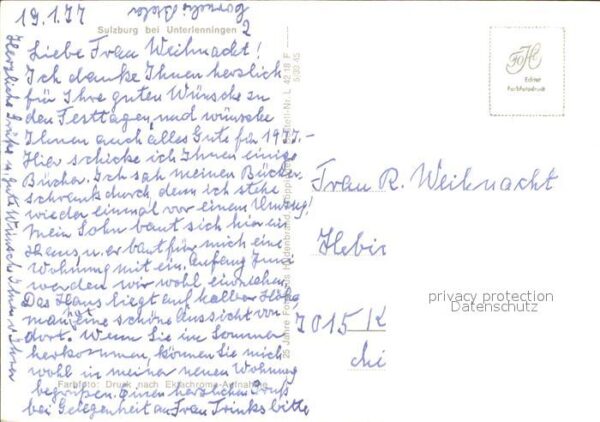 19.1.77
Sulzburg bei Unterlenningen
Liebe Frau Weihnacht!
Ich danke Ihnen herzlich
für Ihre guten Wünsche zu
den Festtagen und wünsche
Ihnen auch alles Gute für 1977.-
Hier schicke ich Ihnen einige
Bücher. Ich sah meinen Bücher-
schrank durch, denn ich stehe
wieder einmal vor einem Umzug!
Mein Sohn baut sich hier ein
Haus, u. er baut für mich eine
Wohnung mit ein. Anfang Juni
werden wir wohl einziehen.
Das Haus liegt auf halber Höhe,
man hat eine schöne Aussicht von
dort. Wenn Sie im Sommer
herkommen, können Sie mich
wohl in meiner neuen Wohnung
Farbfoto: Druck nach Ektachrome-Aufnahme
begrüßen. Einen herzlichen Gruß
bei Gelegenheit an Frau Trinks bitte
Herzliche Grüße u. gute Wünsche Ihnen v. Ihrer
25 Jahre
L 4218 F
Echter
Farbfotodruck
Frau R. Weihnacht
7015 K
privacy protection
Datenschutz